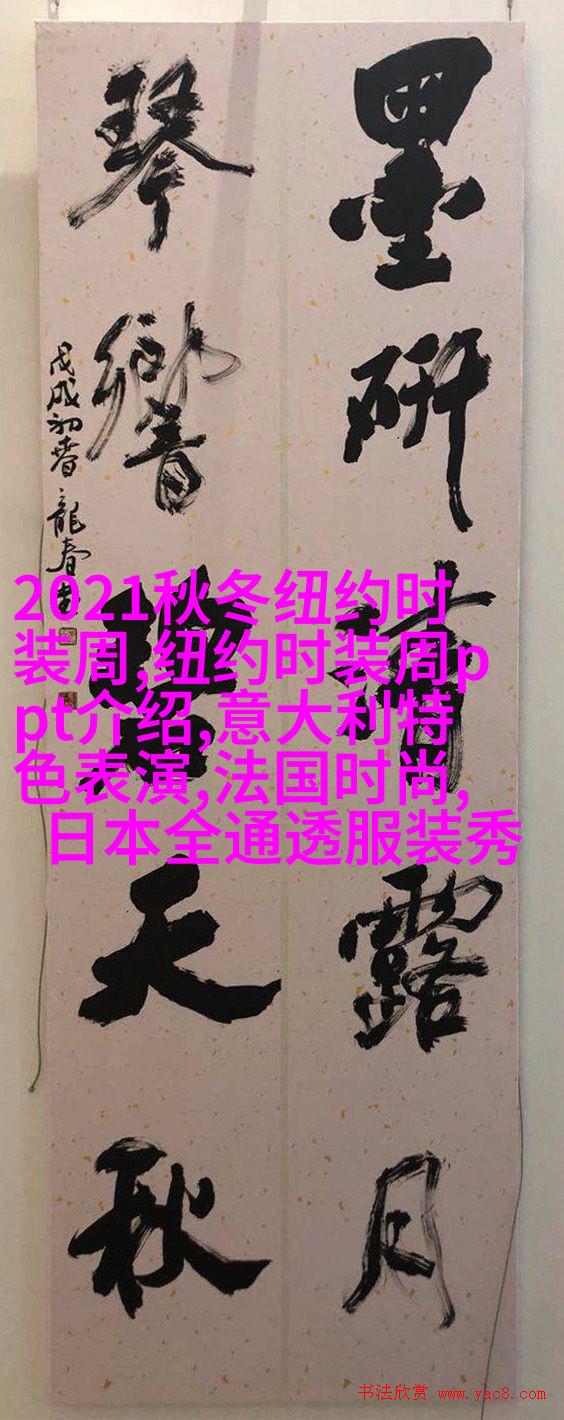 墨研清露月
琴響碧天秋
戊戌初春龍春書
2021秋冬纽约时
装周,纽约时装周p
pt介绍,意大利特
色表演,法国时尚,
日本全通透服装秀
书法欣赏 www.yac8.com